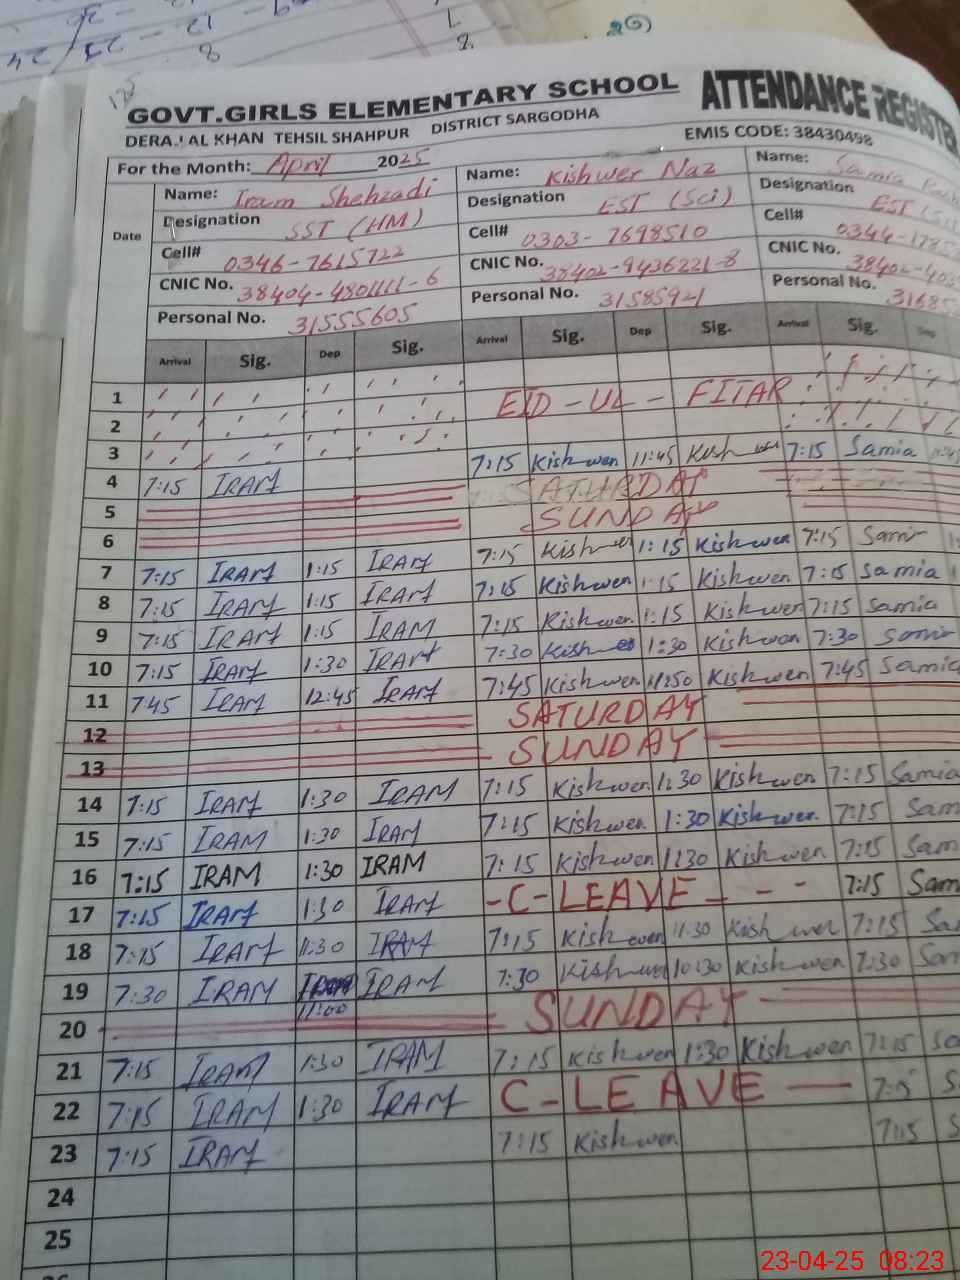 GOVT.GIRLS ELEMENTARY SCHOOL ATTENDANCE REGISTER
DERA.! AL KHAN TEHSIL SHAHPUR DISTRICT SARGODHA EMIS CODE: 38430498
For the Month: April 2025
Date
Name: Iram Shehzadi Name: Kishwer Naz Name: Samia
Designation SST (HM) Designation EST (Sci) Designation EST
Cell# 0346-7615722 Cell# 0303-7698510 Cell# 0344-
CNIC No. 38404-4801111-6 CNIC No. 38402-9436221-8 CNIC No. 38402-
Personal No. 31555605 Personal No. 31585921 Personal No. 3168
Arrival Sig. Dep Sig. Arrival Sig. Dep Sig. Arrival Sig. Dep
1 EID-UL-FITAR
2
3
4 7:15 IRAM 7:15 Kishwer 11:45 Kishwer 7:15 Samia
5 SATURDAY
6 SUNDAY
7 7:15 IRAM 1:15 IRAM 7:15 Kishwer 1:15 Kishwer 7:15 Samia
8 7:15 IRAM 1:15 IRAM 7:15 Kishwer 1:15 Kishwer 7:15 Samia
9 7:15 IRAM 1:15 IRAM 7:15 Kishwer 1:15 Kishwer 7:15 Samia
10 7:15 IRAM 1:30 IRAM 7:30 Kishwer 1:30 Kishwer 7:30 Samia
11 7:45 IRAM 12:45 IRAM 7:45 Kishwer 11:50 Kishwer 7:45 Samia
12 SATURDAY
13 SUNDAY
14 7:15 IRAM 1:30 IRAM 7:15 Kishwer 1:30 Kishwer 7:15 Samia
15 7:15 IRAM 1:30 IRAM 7:15 Kishwer 1:30 Kishwer 7:15 Sam
16 7:15 IRAM 1:30 IRAM 7:15 Kishwer 1:30 Kishwer 7:15 Sam
17 7:15 IRAM 1:30 IRAM -C-LEAVE - - - 7:15 Sam
18 7:15 IRAM 11:30 IRAM 7:15 Kishwer 11:30 Kishwer 7:15 Sa
19 7:30 IRAM 11:00 IRAM 7:30 Kishwer 10:30 Kishwer 7:30 Sam
20 SUNDAY
21 7:15 IRAM 1:30 IRAM 7:15 Kishwer 1:30 Kishwer 7:15 Sa
22 7:15 IRAM 1:30 IRAM C-LEAVE — 7:15 S
23 7:15 IRAM 7:15 Kishwer 7:15 S
24
25
23-04-25 08:23